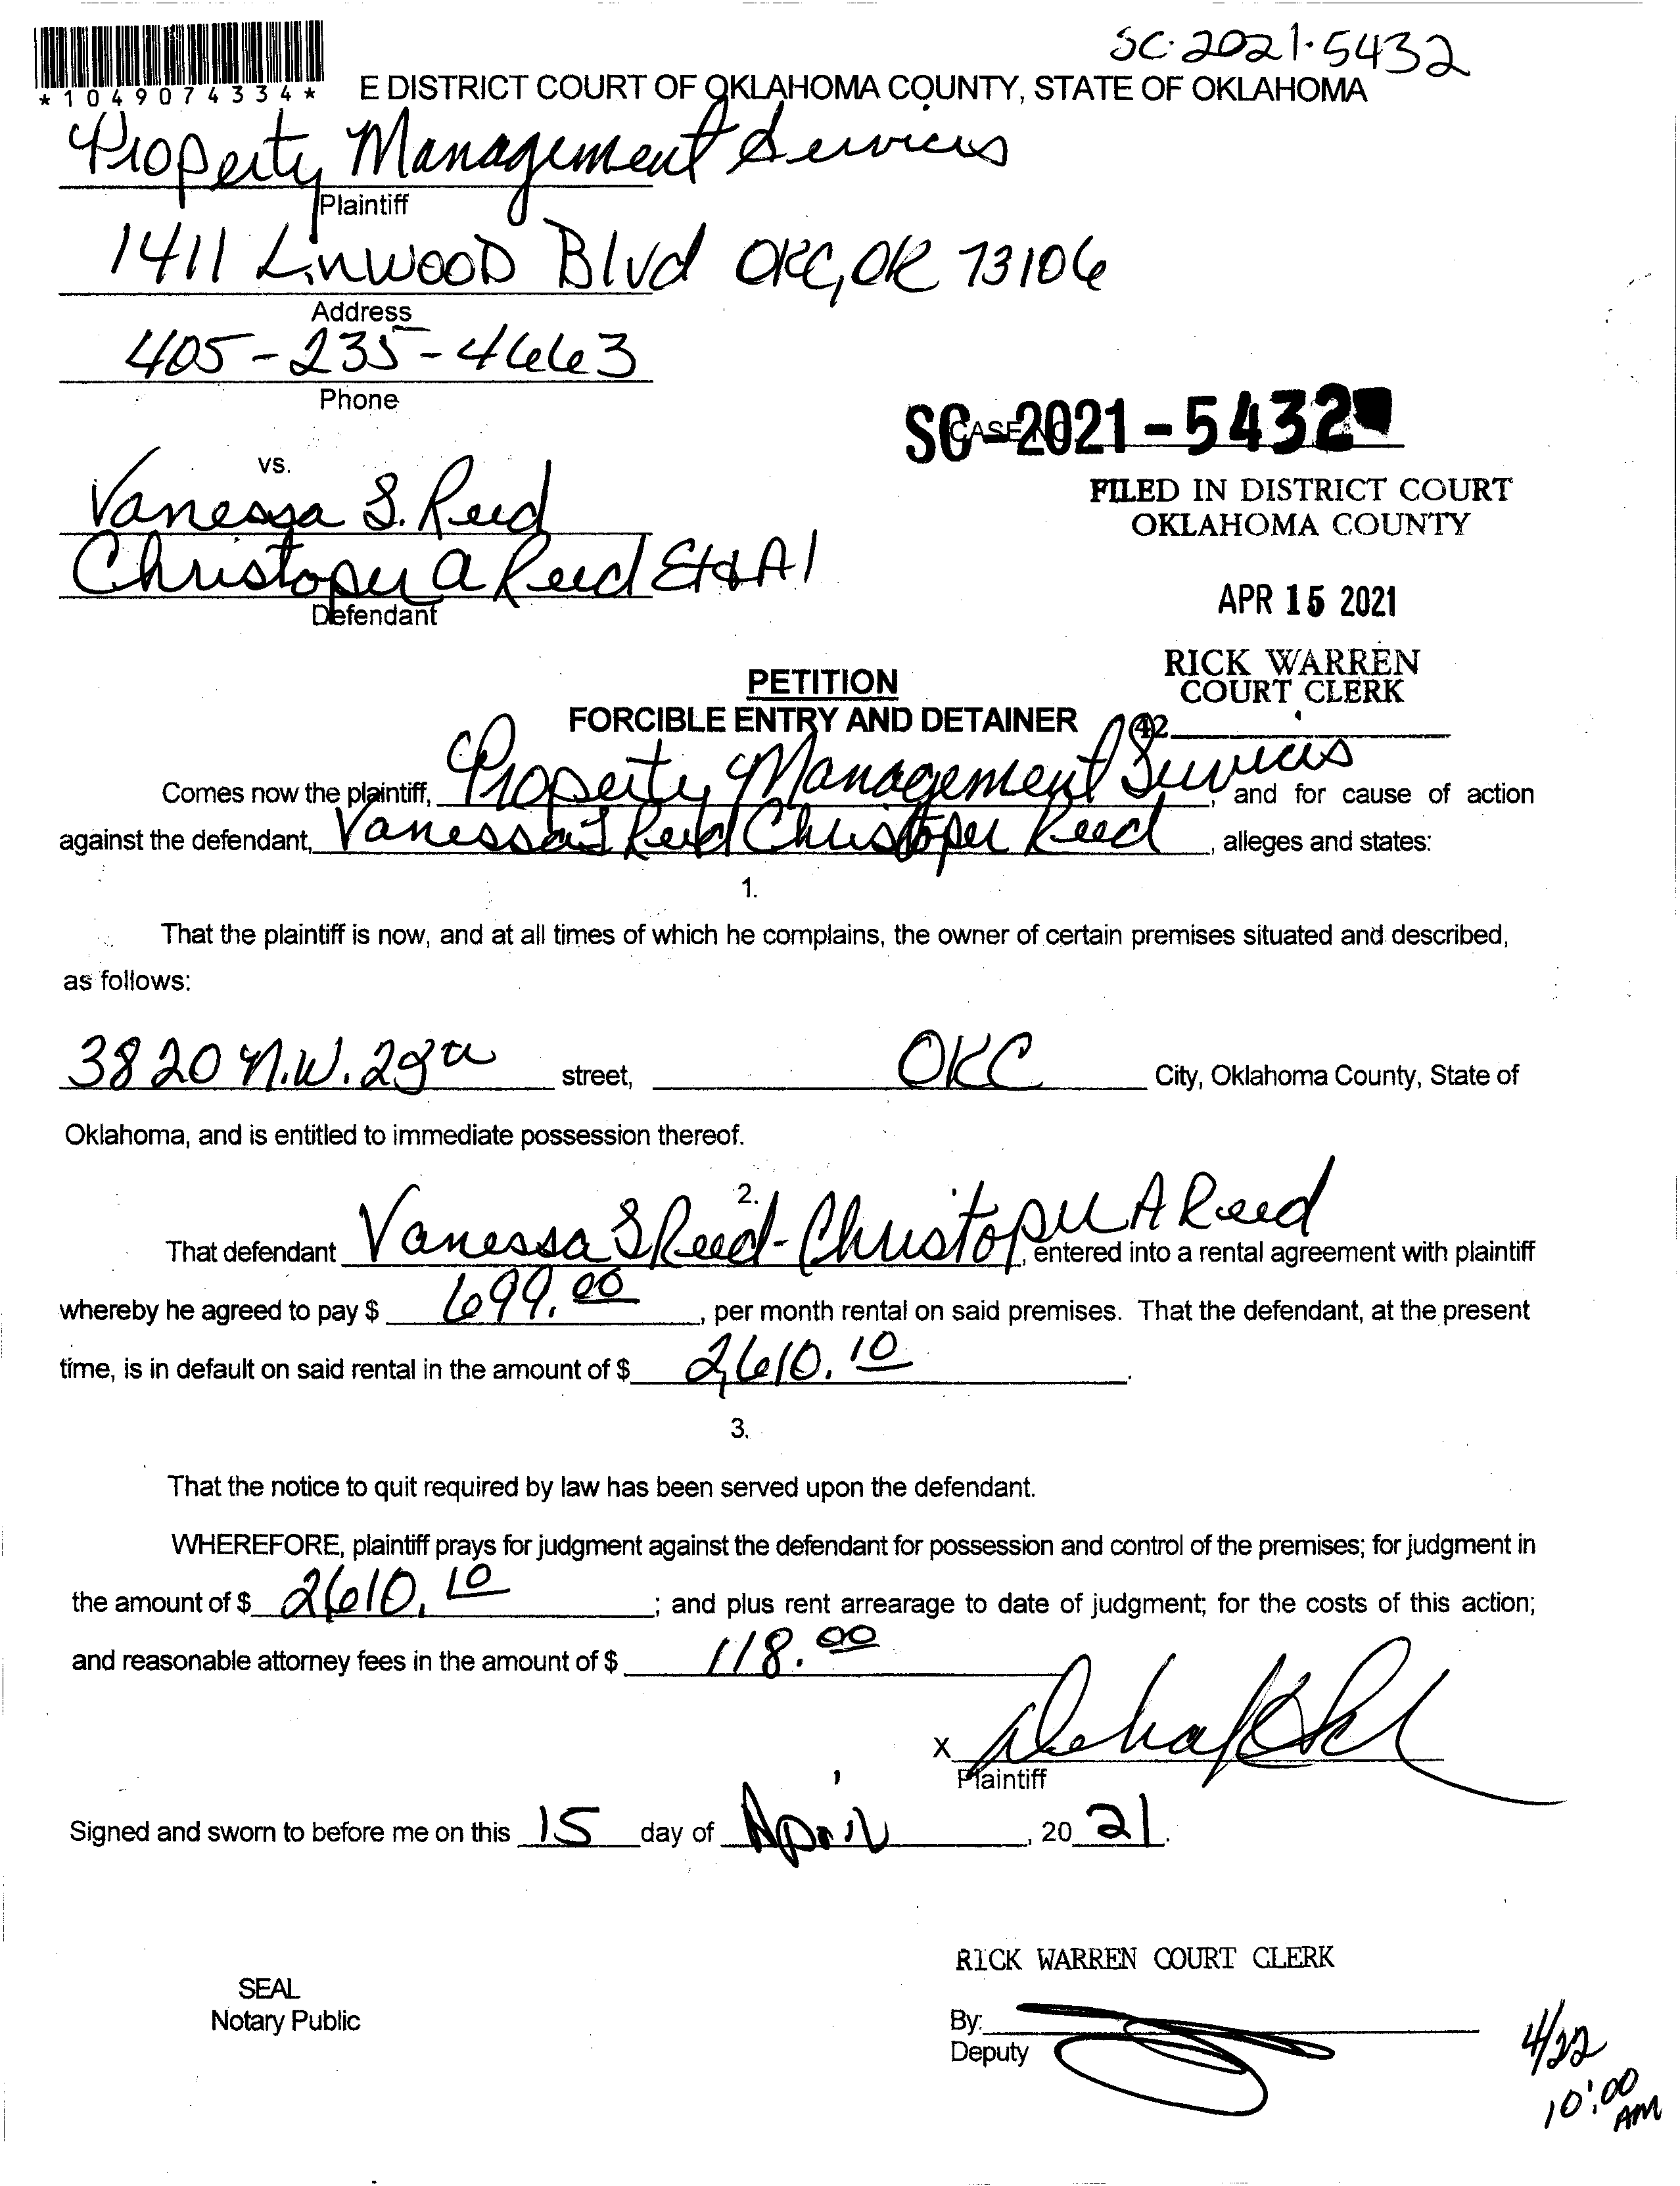 SC-2021-5432
*1049074334*
E DISTRICT COURT OF OKLAHOMA COUNTY, STATE OF OKLAHOMA
Property Management Services
Plaintiff
1411 Linwood Blvd OKC, OK 73106
Address
405-235-4663
Phone
SC-2021-5432
CASE NO
FILED IN DISTRICT COURT
OKLAHOMA COUNTY
vs.
Vanessa S. Reed
Christoper A Reed Et Al
Defendant
APR 15 2021
RICK WARREN
COURT CLERK
42
PETITION
FORCIBLE ENTRY AND DETAINER
Comes now the plaintiff, Property Management Services, and for cause of action
against the defendant, Vanessa S Reed Christoper Reed, alleges and states:
1.
That the plaintiff is now, and at all times of which he complains, the owner of certain premises situated and described,
as follows:
3820 N.W. street, OKC City, Oklahoma County, State of
Oklahoma, and is entitled to immediate possession thereof.
2.
That defendant Vanessa S Reed - Christoper A Reed, entered into a rental agreement with plaintiff
whereby he agreed to pay $ 699.00, per month rental on said premises. That the defendant, at the present
time, is in default on said rental in the amount of $ 2,610.10.
3.
That the notice to quit required by law has been served upon the defendant.
WHEREFORE, plaintiff prays for judgment against the defendant for possession and control of the premises; for judgment in
the amount of $ 2610.10; and plus rent arrearage to date of judgment; for the costs of this action;
and reasonable attorney fees in the amount of $ 118.00
X
Plaintiff
Signed and sworn to before me on this 15 day of April, 20 21.
RICK WARREN COURT CLERK
SEAL
Notary Public
By:
Deputy
4/22
10:00
AM